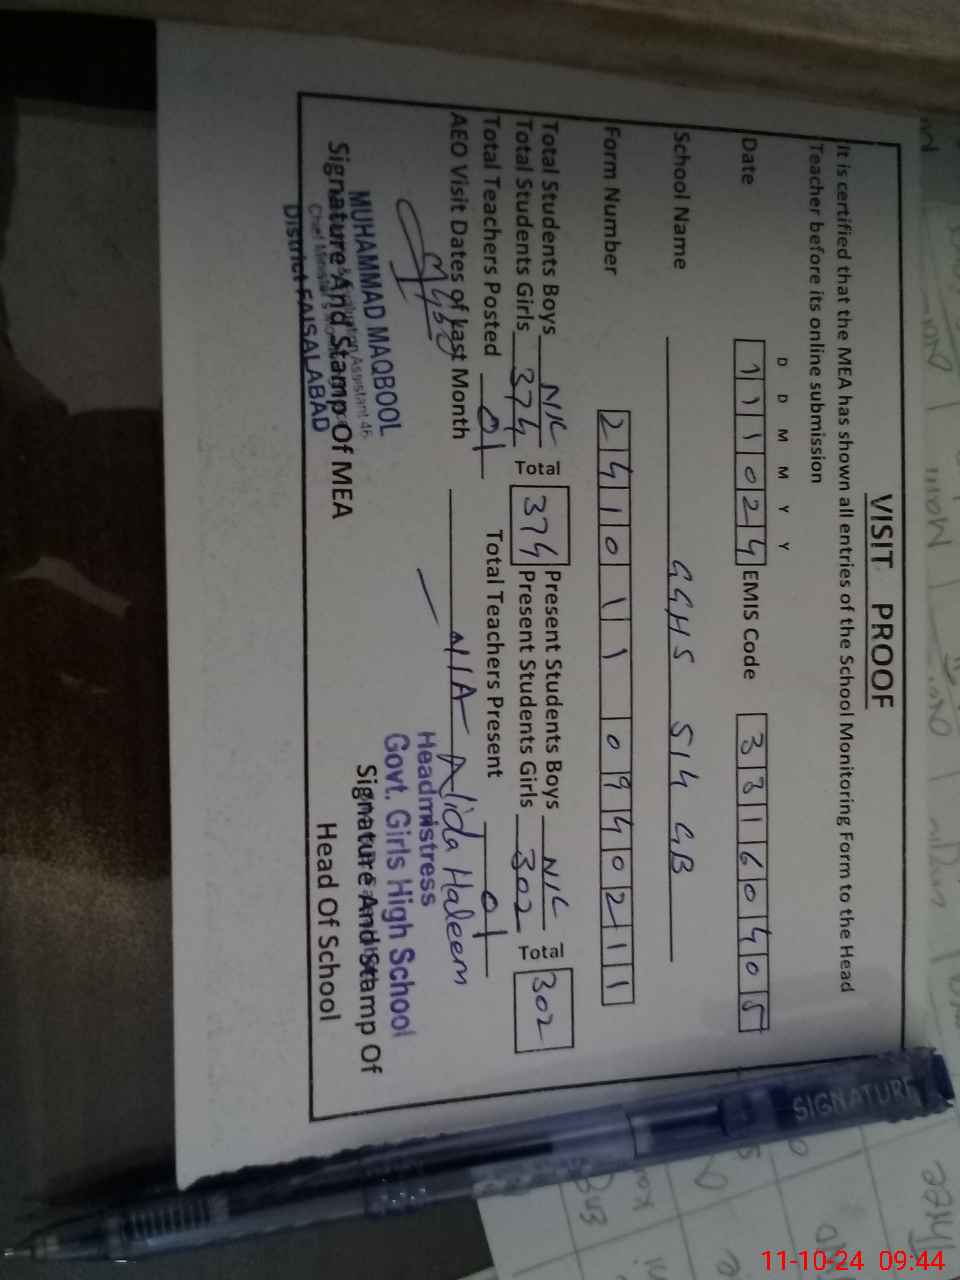 VISIT PROOF
It is certified that the MEA has shown all entries of the School Monitoring Form to the Head
Teacher before its online submission
D D M M Y Y
Date 111024 EMIS Code 33160405
School Name GGHS 514 GB
Form Number 2410 1 1 0940211
Total Students Boys NIL Total 374 Present Students Boys NIL Total 302
Total Students Girls 374 Present Students Girls 302
Total Teachers Posted 01 Total Teachers Present 01
AEO Visit Dates of Last Month N/A
Alida Haleem
MUHAMMAD MAQBOOL
Assistant 46
Chief Minister's
District FAISALABAD
Signature And Stamp Of MEA
Headmistress
Govt. Girls High School
Signature And Stamp Of
Head Of School
SIGNATURE
11-10-24 09:44